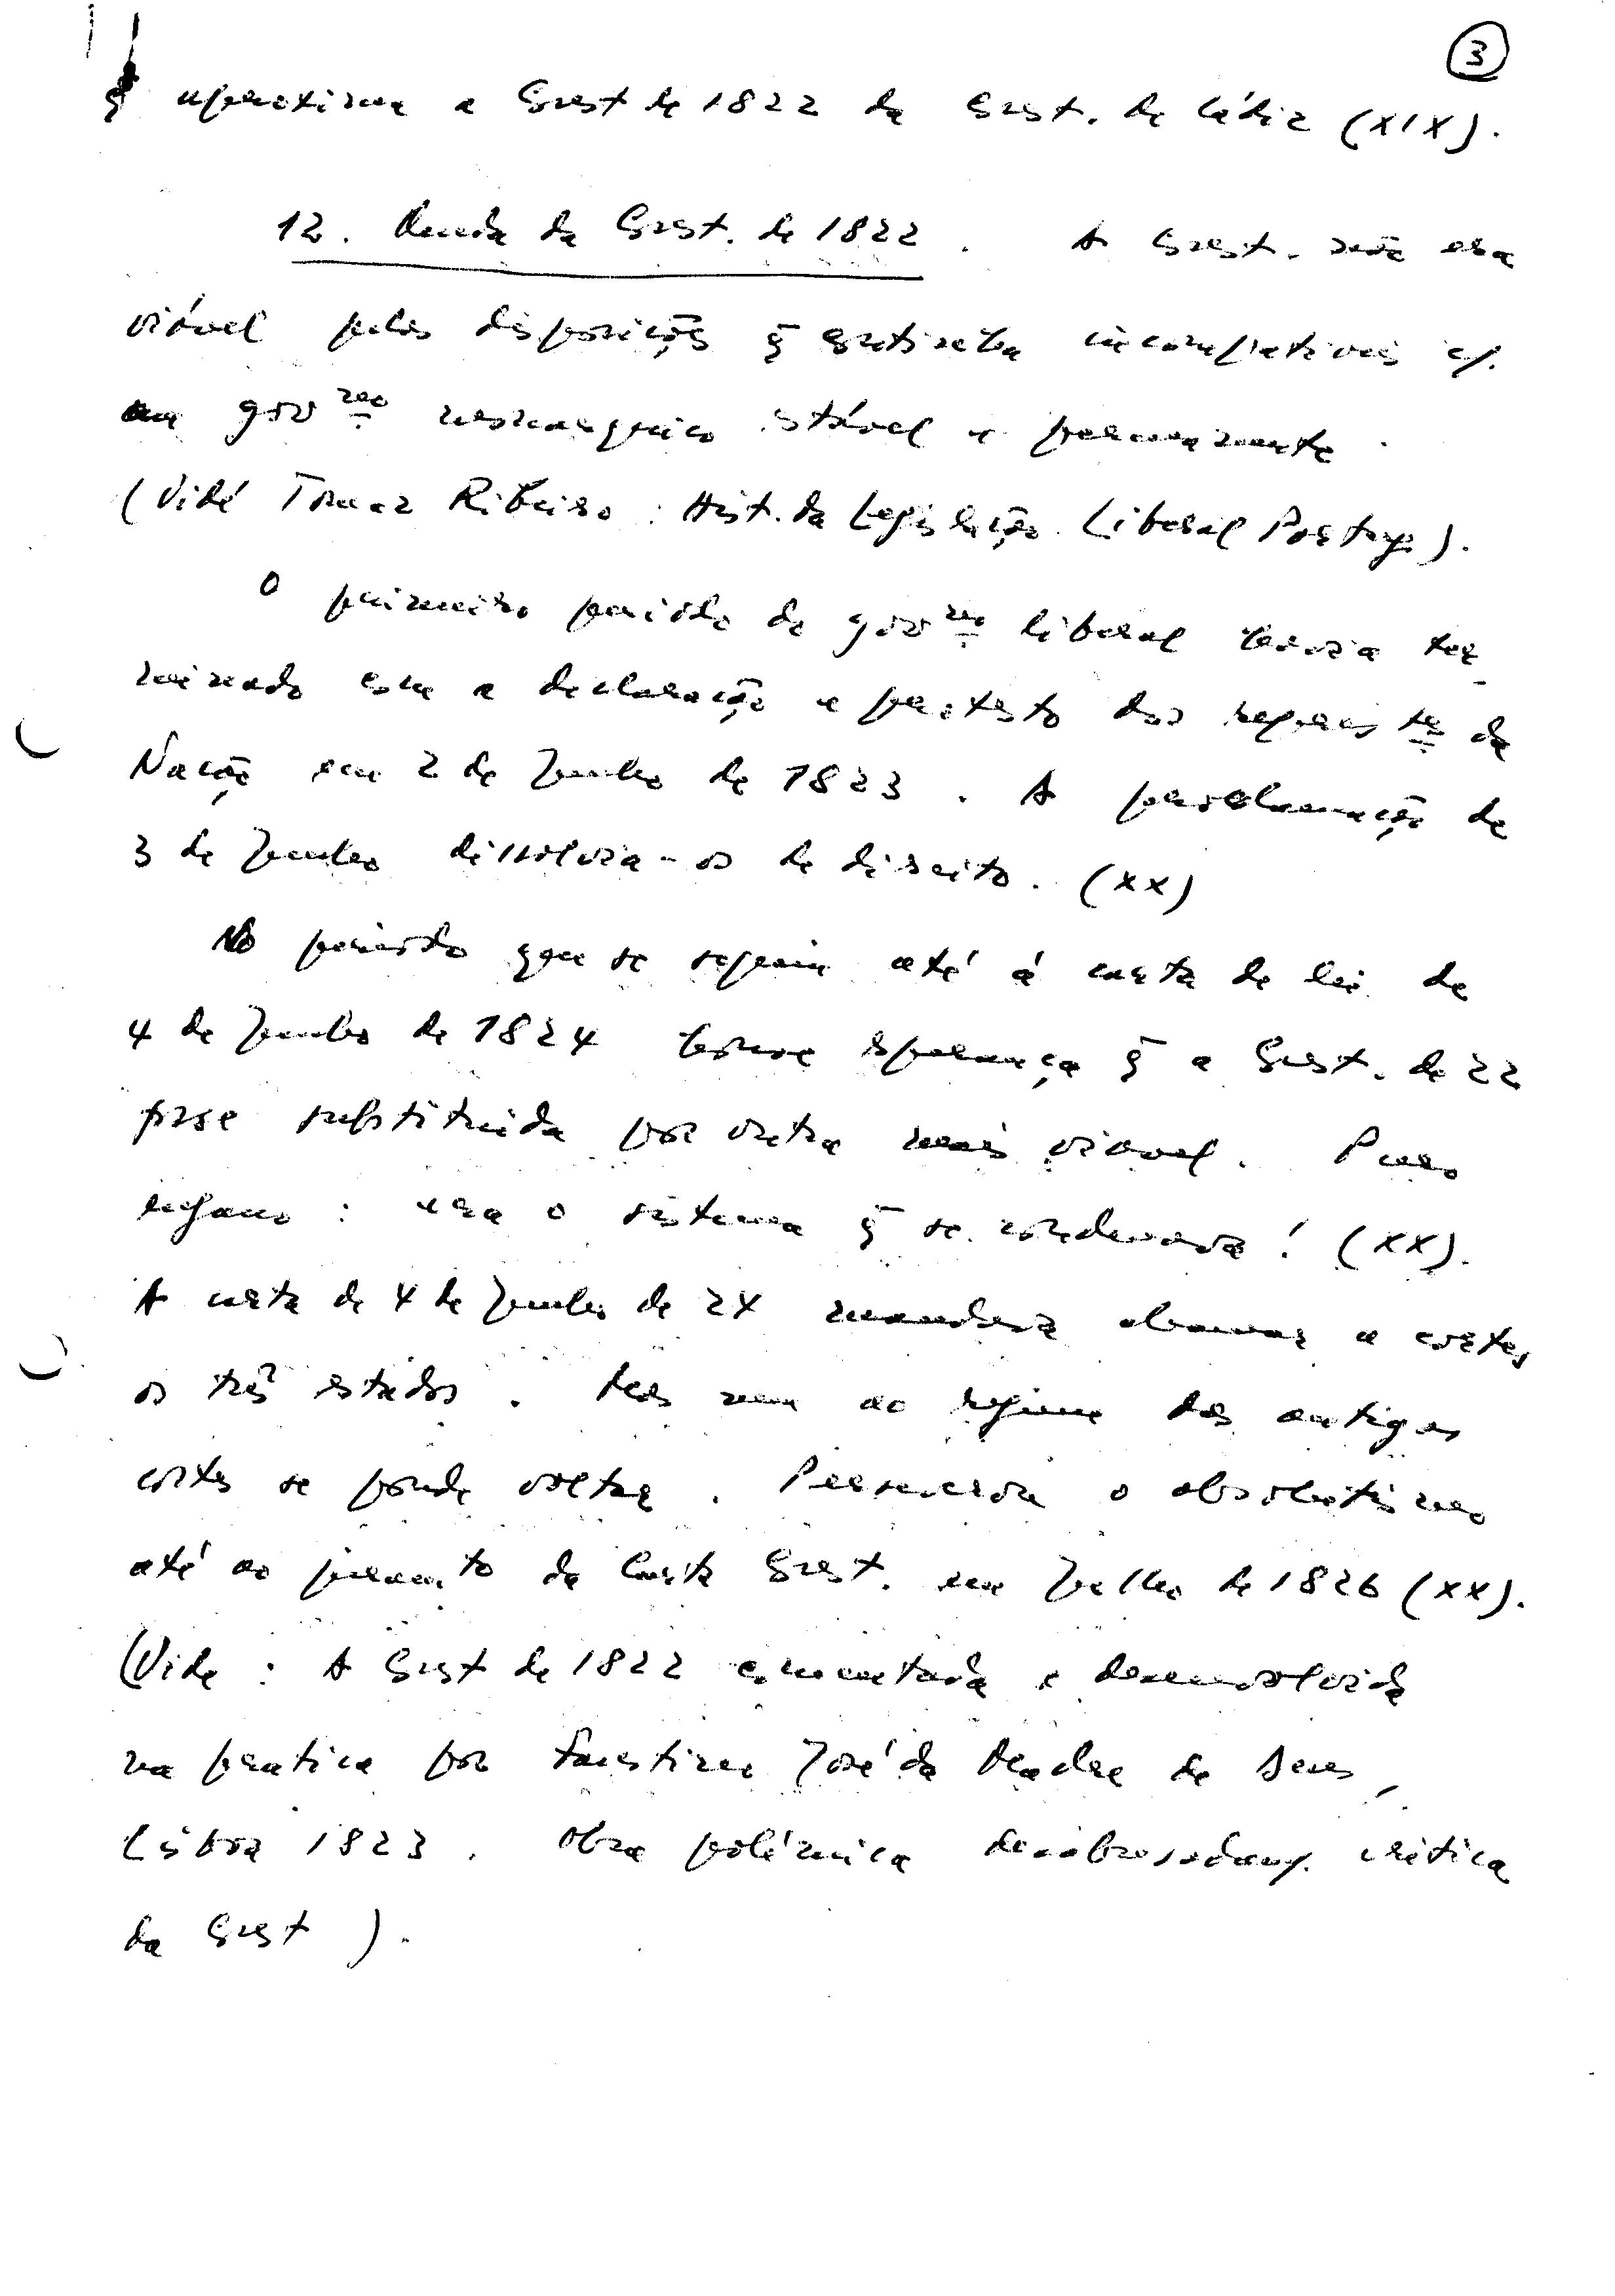 3
q̃ aproxima a Const de 1822 da Const. de Cádiz (XIX).
12. Queda da Const. de 1822. A Const. não era
viável pelas disposições q̃ continha incompativeis c/.
um gov.no monarquico estável e permanente.
(Vidé Tomaz Ribeiro: Hist. da Legislação Liberal Portug.).
O primeiro periodo do gov.no liberal havia ter_
minado com a declaração e protesto dos repres.tes da
Nação em 2 de Junho de 1823. A proclamação de
3 de Junho dissolvia-os de direito. (XX)
No periodo que se seguiu até á carta de lei de
4 de Junho de 1824 houve esperança q̃ a Const. de 22
fosse substituida por outra mais viavel. Puro
engano: era o sistema q̃ se condenava! (XX).
A carta de 4 de Junho de 24 mandava chamar a cortes
os três estados. Mas nem ao regime das antigas
cortes se poude voltar. Perseverou o absolutismo
até ao juram.to da Carta Const. em Julho de 1826 (XX).
(Vide: A Const de 1822 comentada e desenvolvida
na pratica por Faustino José da Madre de Deus,
Lisboa 1823. Obra polémica crítica
da Const).